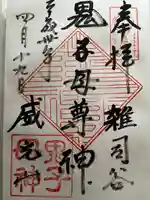 奉拝 雑司谷
鬼子母尊神
平成卅年
四月十九日
威光山